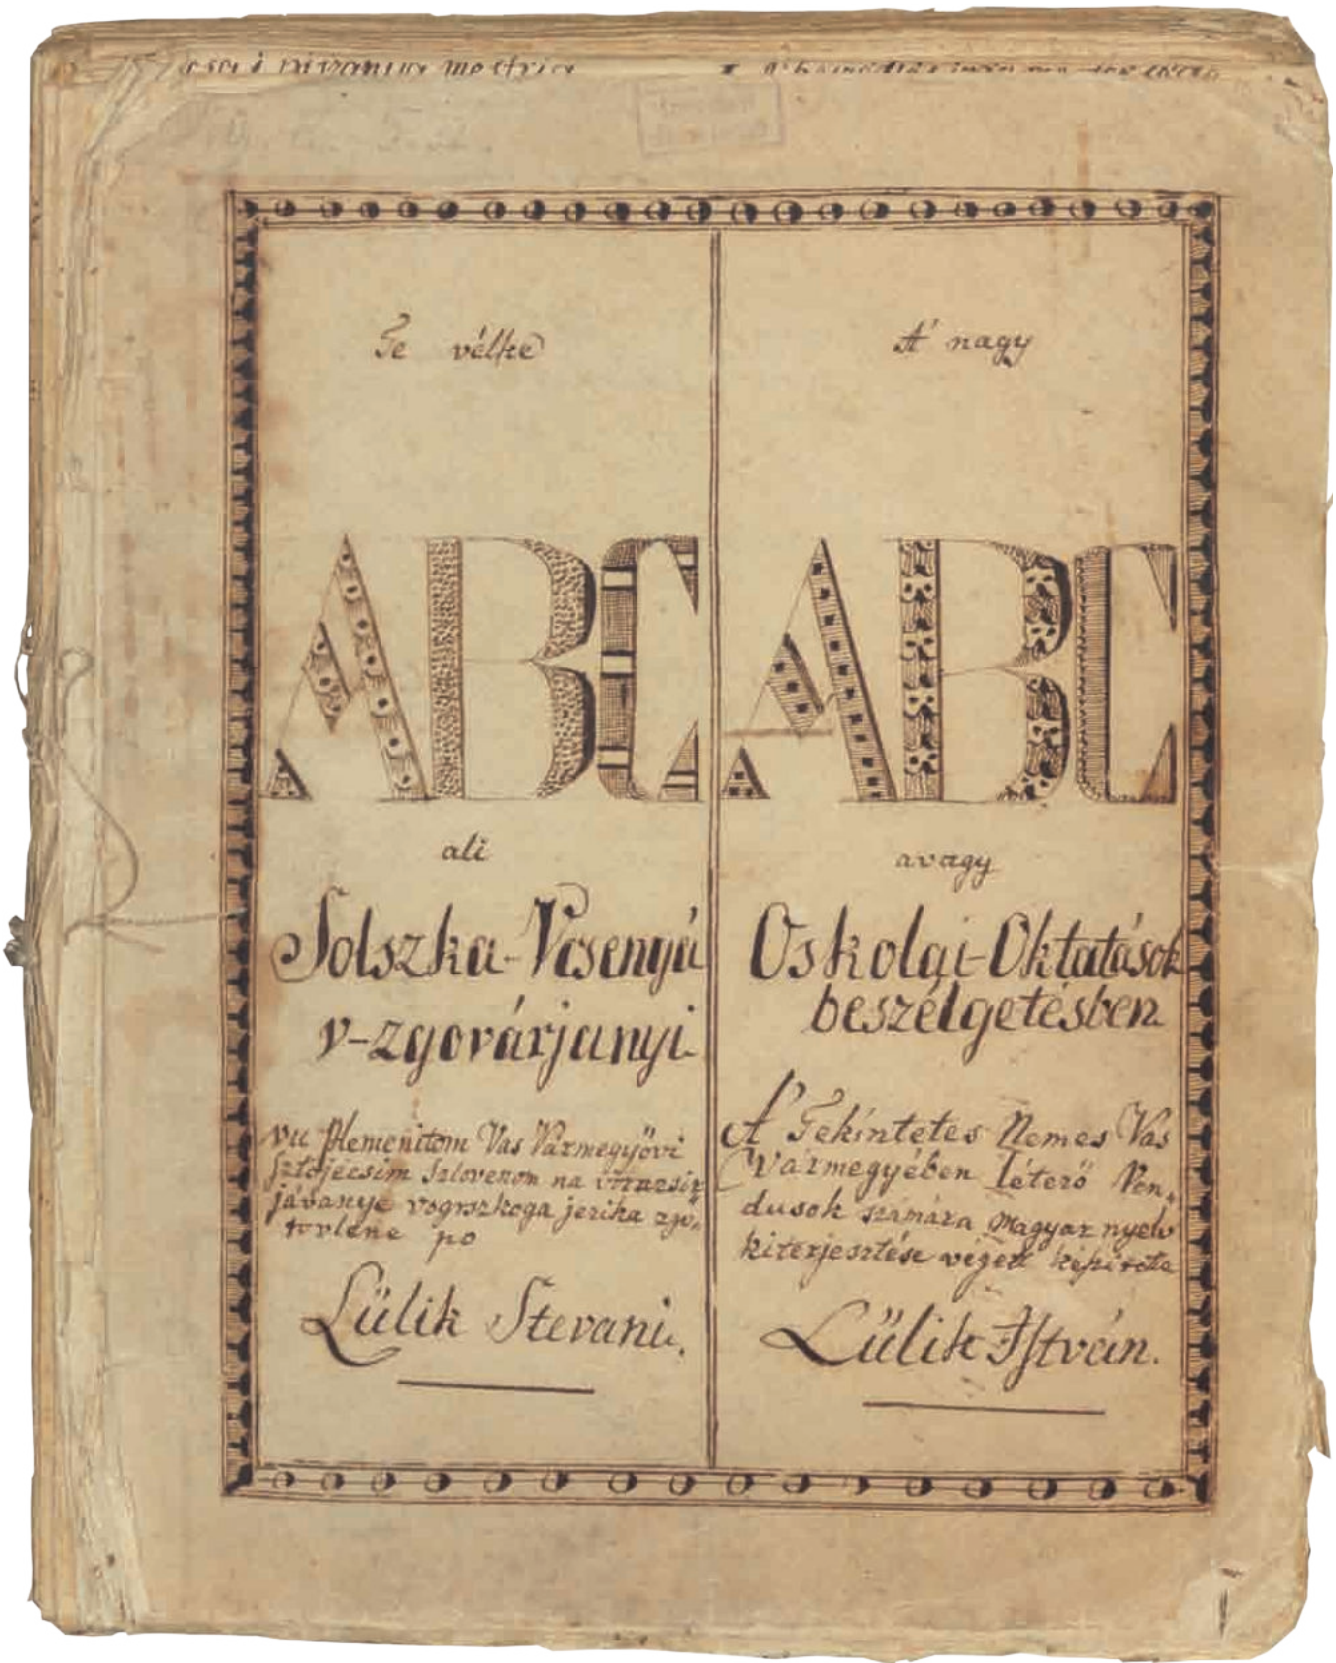 Te vélke
ABC
ali
Solszka-Vcsenyá
v-zgovárjanyi
vu Plemenitom Vas Vármegyövi
sztojécsim Szlovenom na
jávanye vogrszkoga jezika
po
Lülik Stevani.
Á nagy
ABC
avagy
Oskolai-Oktatások
beszélgetésben
Á Tekíntetes Nemes Vas
Vármegyében léterö Ven,,
dusok számára Magyar nyelv
kiterjesztése végett
Lülik Istvan.